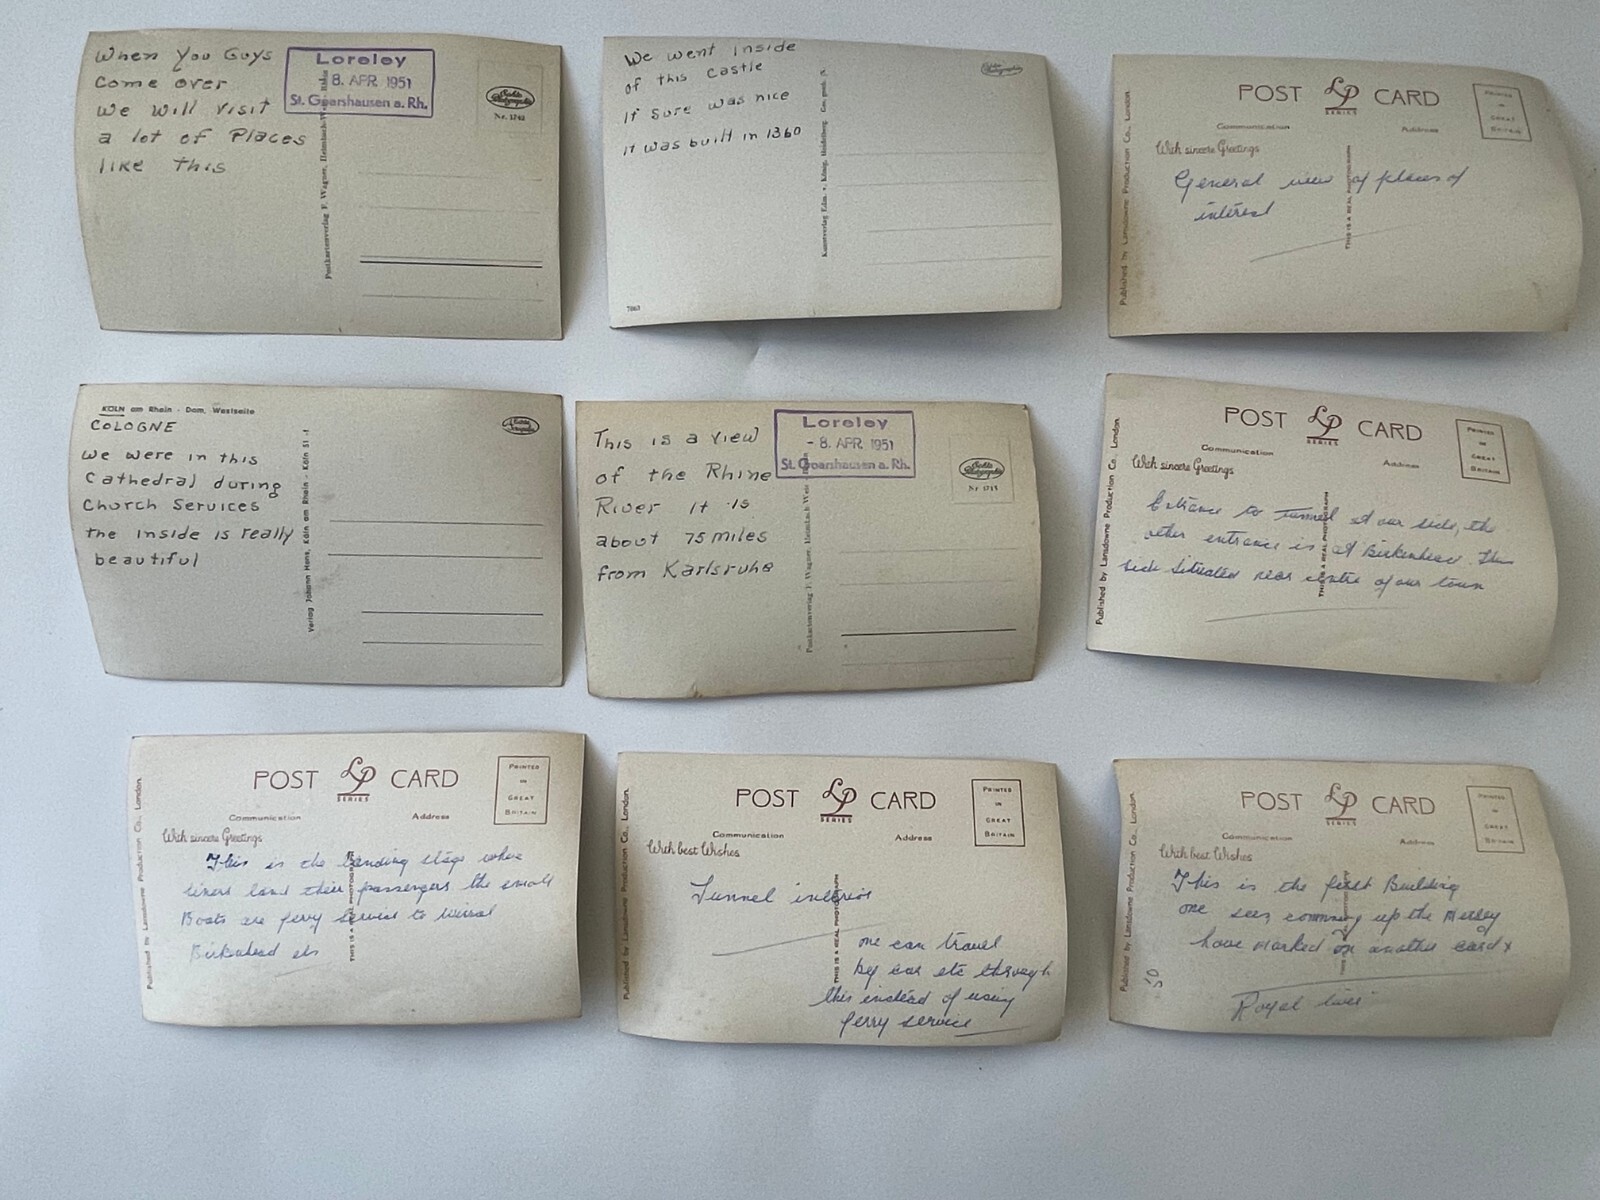 When You Guys
come over
we will visit
a lot of Places
like this
Loreley
- 8. APR. 1951
St. Goarshausen a. Rh.
Nr. 1242
Postkartenverlag F. Wagner, Heimbach-
We went inside
of this castle
it sure was nice
it was built in 1360
Kunstverlag Edm. v. König, Heidelberg.
7863
POST LP CARD
SERIES
PRINTED
IN
GREAT
BRITAIN
Communication
Address
With sincere Greetings
General view of places of
interest
THIS IS A REAL PHOTOGRAPH
Published by Lansdowne Production Co., London.
KÖLN am Rhein - Dom, Westseite
COLOGNE
we were in this
Cathedral during
Church Services
the inside is really
beautiful
Verlag Johann Hens, Köln am Rhein - Köln
This is a view
of the Rhine
River it is
about 75 miles
from Karlsruhe
Loreley
- 8. APR. 1951
St. Goarshausen a. Rh.
Postkartenverlag F. Wagner, Heimbach-
POST LP CARD
SERIES
PRINTED
IN
GREAT
BRITAIN
Communication
Address
With sincere Greetings
Entrance to Tunnel at our side, the
other entrance is at Birkenhead This
side situated near centre of our town
THIS IS A REAL PHOTOGRAPH
Published by Lansdowne Production Co., London.
POST LP CARD
SERIES
PRINTED
IN
GREAT
BRITAIN
Communication
Address
With sincere Greetings
This is the landing stage where
liners land their passengers the small
Boats are ferry service to Wirral
Birkenhead etc
THIS IS A REAL PHOTOGRAPH
Published by Lansdowne Production Co., London.
POST LP CARD
SERIES
PRINTED
IN
GREAT
BRITAIN
Communication
Address
With best Wishes
Tunnel interior
one can travel
by car etc through
this instead of using
ferry service
THIS IS A REAL PHOTOGRAPH
Published by Lansdowne Production Co., London.
POST LP CARD
SERIES
PRINTED
IN
GREAT
BRITAIN
Communication
Address
With best Wishes
This is the first Building
one sees comming up the Mersey
have marked on another card x
Royal liver
Published by Lansdowne Production Co., London.